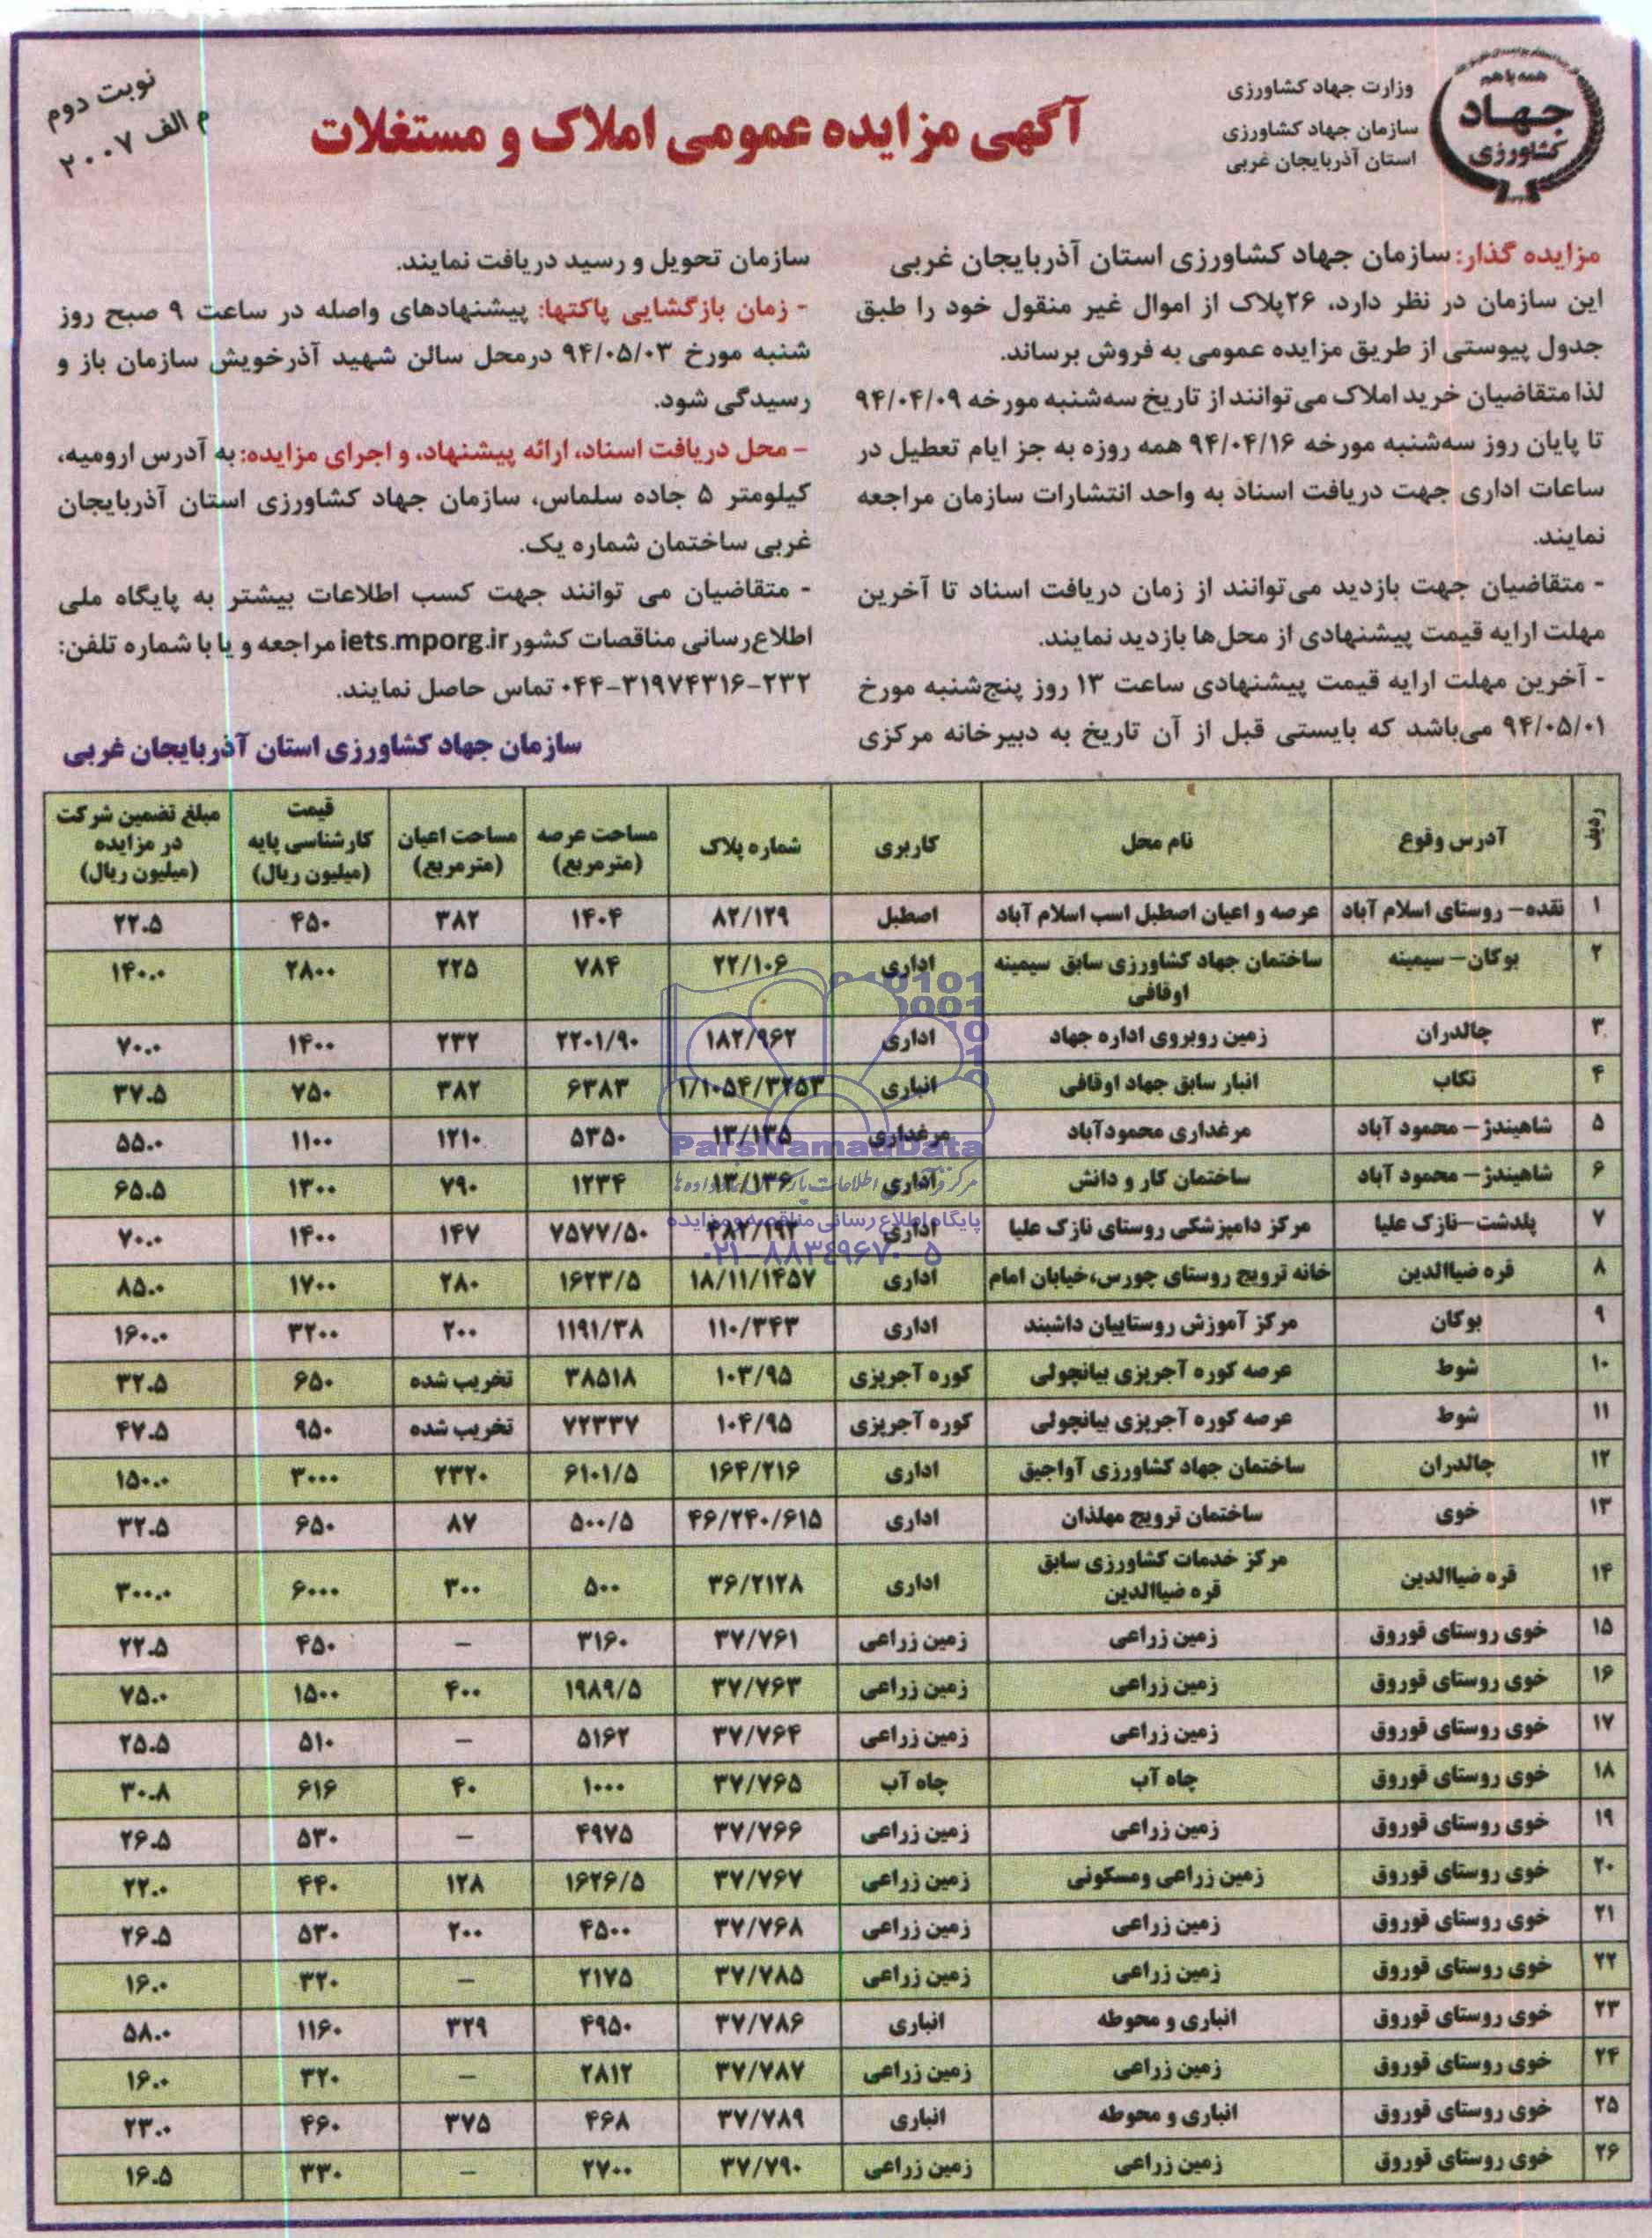 همه با هم
جهاد
کشاورزی
وزارت جهاد کشاورزی
سازمان جهاد کشاورزی
استان آذربایجان غربی
آگهی مزایده عمومی املاک و مستغلات
نوبت دوم
م الف ۲۰۰۷
مزایده گذار: سازمان جهاد کشاورزی استان آذربایجان غربی
این سازمان در نظر دارد، ۲۶پلاک از اموال غیر منقول خود را طبق
جدول پیوستی از طریق مزایده عمومی به فروش برساند.
لذا متقاضیان خرید املاک می‌توانند از تاریخ سه‌شنبه مورخه ۹۴/۰۴/۰۹
تا پایان روز سه‌شنبه مورخه ۹۴/۰۴/۱۶ همه روزه به جز ایام تعطیل در
ساعات اداری جهت دریافت اسناد به واحد انتشارات سازمان مراجعه
نمایند.
- متقاضیان جهت بازدید می‌توانند از زمان دریافت اسناد تا آخرین
مهلت ارایه قیمت پیشنهادی از محل‌ها بازدید نمایند.
- آخرین مهلت ارایه قیمت پیشنهادی ساعت ۱۳ روز پنج‌شنبه مورخ
۹۴/۰۵/۰۱ می‌باشد که بایستی قبل از آن تاریخ به دبیرخانه مرکزی
سازمان تحویل و رسید دریافت نمایند.
- زمان بازگشایی پاکتها: پیشنهادهای واصله در ساعت ۹ صبح روز
شنبه مورخ ۹۴/۰۵/۰۳ درمحل سالن شهید آذرخویش سازمان باز و
رسیدگی شود.
- محل دریافت اسناد، ارائه پیشنهاد، و اجرای مزایده: به آدرس ارومیه،
کیلومتر ۵ جاده سلماس، سازمان جهاد کشاورزی استان آذربایجان
غربی ساختمان شماره یک.
- متقاضیان می توانند جهت کسب اطلاعات بیشتر به پایگاه ملی
اطلاع‌رسانی مناقصات کشور iets.mporg.ir مراجعه و یا با شماره تلفن:
۰۴۴-۳۱۹۷۴۳۱۶-۲۳۲ تماس حاصل نمایند.
سازمان جهاد کشاورزی استان آذربایجان غربی
ردیف آدرس وقوع نام محل کاربری شماره پلاک مساحت عرصه (مترمربع) مساحت اعیان (مترمربع) قیمت کارشناسی پایه (میلیون ریال) مبلغ تضمین شرکت در مزایده (میلیون ریال)
۱ نقده- روستای اسلام آباد عرصه و اعیان اصطبل اسب اسلام آباد اصطبل ۸۲/۱۲۹ ۱۴۰۴ ۳۸۲ ۴۵۰ ۲۲.۵
۲ بوکان- سیمینه ساختمان جهاد کشاورزی سابق سیمینه اوقافی اداری ۲۲/۱۰۶ ۷۸۴ ۲۲۵ ۲۸۰۰ ۱۴۰.۰
۳ چالدران زمین روبروی اداره جهاد اداری ۱۸۲/۹۶۲ ۲۲۰۱/۹۰ ۲۳۲ ۱۴۰۰ ۷۰.۰
۴ تکاب انبار سابق جهاد اوقافی انباری ۱/۱۰۵۴/۳۲۵۳ ۶۳۸۳ ۳۸۲ ۷۵۰ ۳۷.۵
۵ شاهیندژ- محمود آباد مرغداری محمودآباد مرغداری ۱۳/۱۳۵ ۵۳۵۰ ۱۲۱۰ ۱۱۰۰ ۵۵.۰
۶ شاهیندژ- محمود آباد ساختمان کار و دانش اداری ۱۳/۱۳۶ ۱۲۳۴ ۷۹۰ ۱۳۰۰ ۶۵.۵
۷ پلدشت-نازک علیا مرکز دامپزشکی روستای نازک علیا اداری ۳۸۲/۱۹۲ ۷۵۷۷/۵۰ ۱۴۷ ۱۴۰۰ ۷۰.۰
۸ قره ضیاالدین خانه ترویج روستای چورس،خیابان امام اداری ۱۸/۱۱/۱۴۵۷ ۱۶۲۳/۵ ۲۸۰ ۱۷۰۰ ۸۵.۰
۹ بوکان مرکز آموزش روستاییان داشبند اداری ۱۱۰/۳۴۳ ۱۱۹۱/۳۸ ۲۰۰ ۳۲۰۰ ۱۶۰.۰
۱۰ شوط عرصه کوره آجرپزی بیانچولی کوره آجرپزی ۱۰۳/۹۵ ۳۸۵۱۸ تخریب شده ۶۵۰ ۳۲.۵
۱۱ شوط عرصه کوره آجرپزی بیانچولی کوره آجرپزی ۱۰۴/۹۵ ۷۲۳۳۷ تخریب شده ۹۵۰ ۴۷.۵
۱۲ چالدران ساختمان جهاد کشاورزی آواجیق اداری ۱۶۴/۲۱۶ ۶۱۰۱/۵ ۲۳۲۰ ۳۰۰۰ ۱۵۰.۰
۱۳ خوی ساختمان ترویج مهلذان اداری ۴۶/۲۴۰/۶۱۵ ۵۰۰/۵ ۸۷ ۶۵۰ ۳۲.۵
۱۴ قره ضیاالدین مرکز خدمات کشاورزی سابق قره ضیاالدین اداری ۳۶/۲۱۲۸ ۵۰۰ ۳۰۰ ۶۰۰۰ ۳۰۰.۰
۱۵ خوی روستای قوروق زمین زراعی زمین زراعی ۳۷/۷۶۱ ۳۱۶۰ - ۴۵۰ ۲۲.۵
۱۶ خوی روستای قوروق زمین زراعی زمین زراعی ۳۷/۷۶۳ ۱۹۸۹/۵ ۴۰۰ ۱۵۰۰ ۷۵.۰
۱۷ خوی روستای قوروق زمین زراعی زمین زراعی ۳۷/۷۶۴ ۵۱۶۲ - ۵۱۰ ۲۵.۵
۱۸ خوی روستای قوروق چاه آب چاه آب ۳۷/۷۶۵ ۱۰۰۰ ۴۰ ۶۱۶ ۳۰.۸
۱۹ خوی روستای قوروق زمین زراعی زمین زراعی ۳۷/۷۶۶ ۴۹۷۵ - ۵۳۰ ۲۶.۵
۲۰ خوی روستای قوروق زمین زراعی ومسکونی زمین زراعی ۳۷/۷۶۷ ۱۶۲۶/۵ ۱۲۸ ۴۴۰ ۲۲.۰
۲۱ خوی روستای قوروق زمین زراعی زمین زراعی ۳۷/۷۶۸ ۴۵۰۰ ۲۰۰ ۵۳۰ ۲۶.۵
۲۲ خوی روستای قوروق زمین زراعی زمین زراعی ۳۷/۷۸۵ ۲۱۷۵ - ۳۲۰ ۱۶.۰
۲۳ خوی روستای قوروق انباری و محوطه انباری ۳۷/۷۸۶ ۴۹۵۰ ۳۲۹ ۱۱۶۰ ۵۸.۰
۲۴ خوی روستای قوروق زمین زراعی زمین زراعی ۳۷/۷۸۷ ۲۸۱۲ - ۳۲۰ ۱۶.۰
۲۵ خوی روستای قوروق انباری و محوطه انباری ۳۷/۷۸۹ ۴۶۸ ۳۷۵ ۴۶۰ ۲۳.۰
۲۶ خوی روستای قوروق زمین زراعی زمین زراعی ۳۷/۷۹۰ ۲۷۰۰ - ۳۳۰ ۱۶.۵
ParsNamadData
پایگاه اطلاع رسانی مناقصه و مزایده
۰۲۱-۸۸۳۴۹۶۷۰-۵